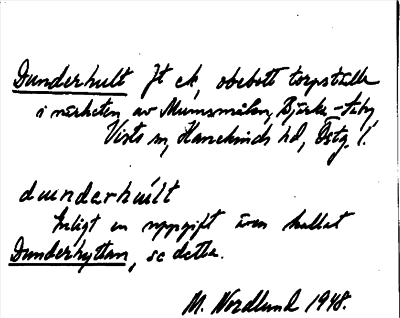 Dunderhult Jt ek, obebott torpställe
i närheten av Mumsmålen, Björke-Säby
Vists sn, Hanekinds hd, Östg. l.
dunderhúlt
Enligt en uppgift även kallat
Dunderhyttan, se detta.
M. Nordlund 1948.